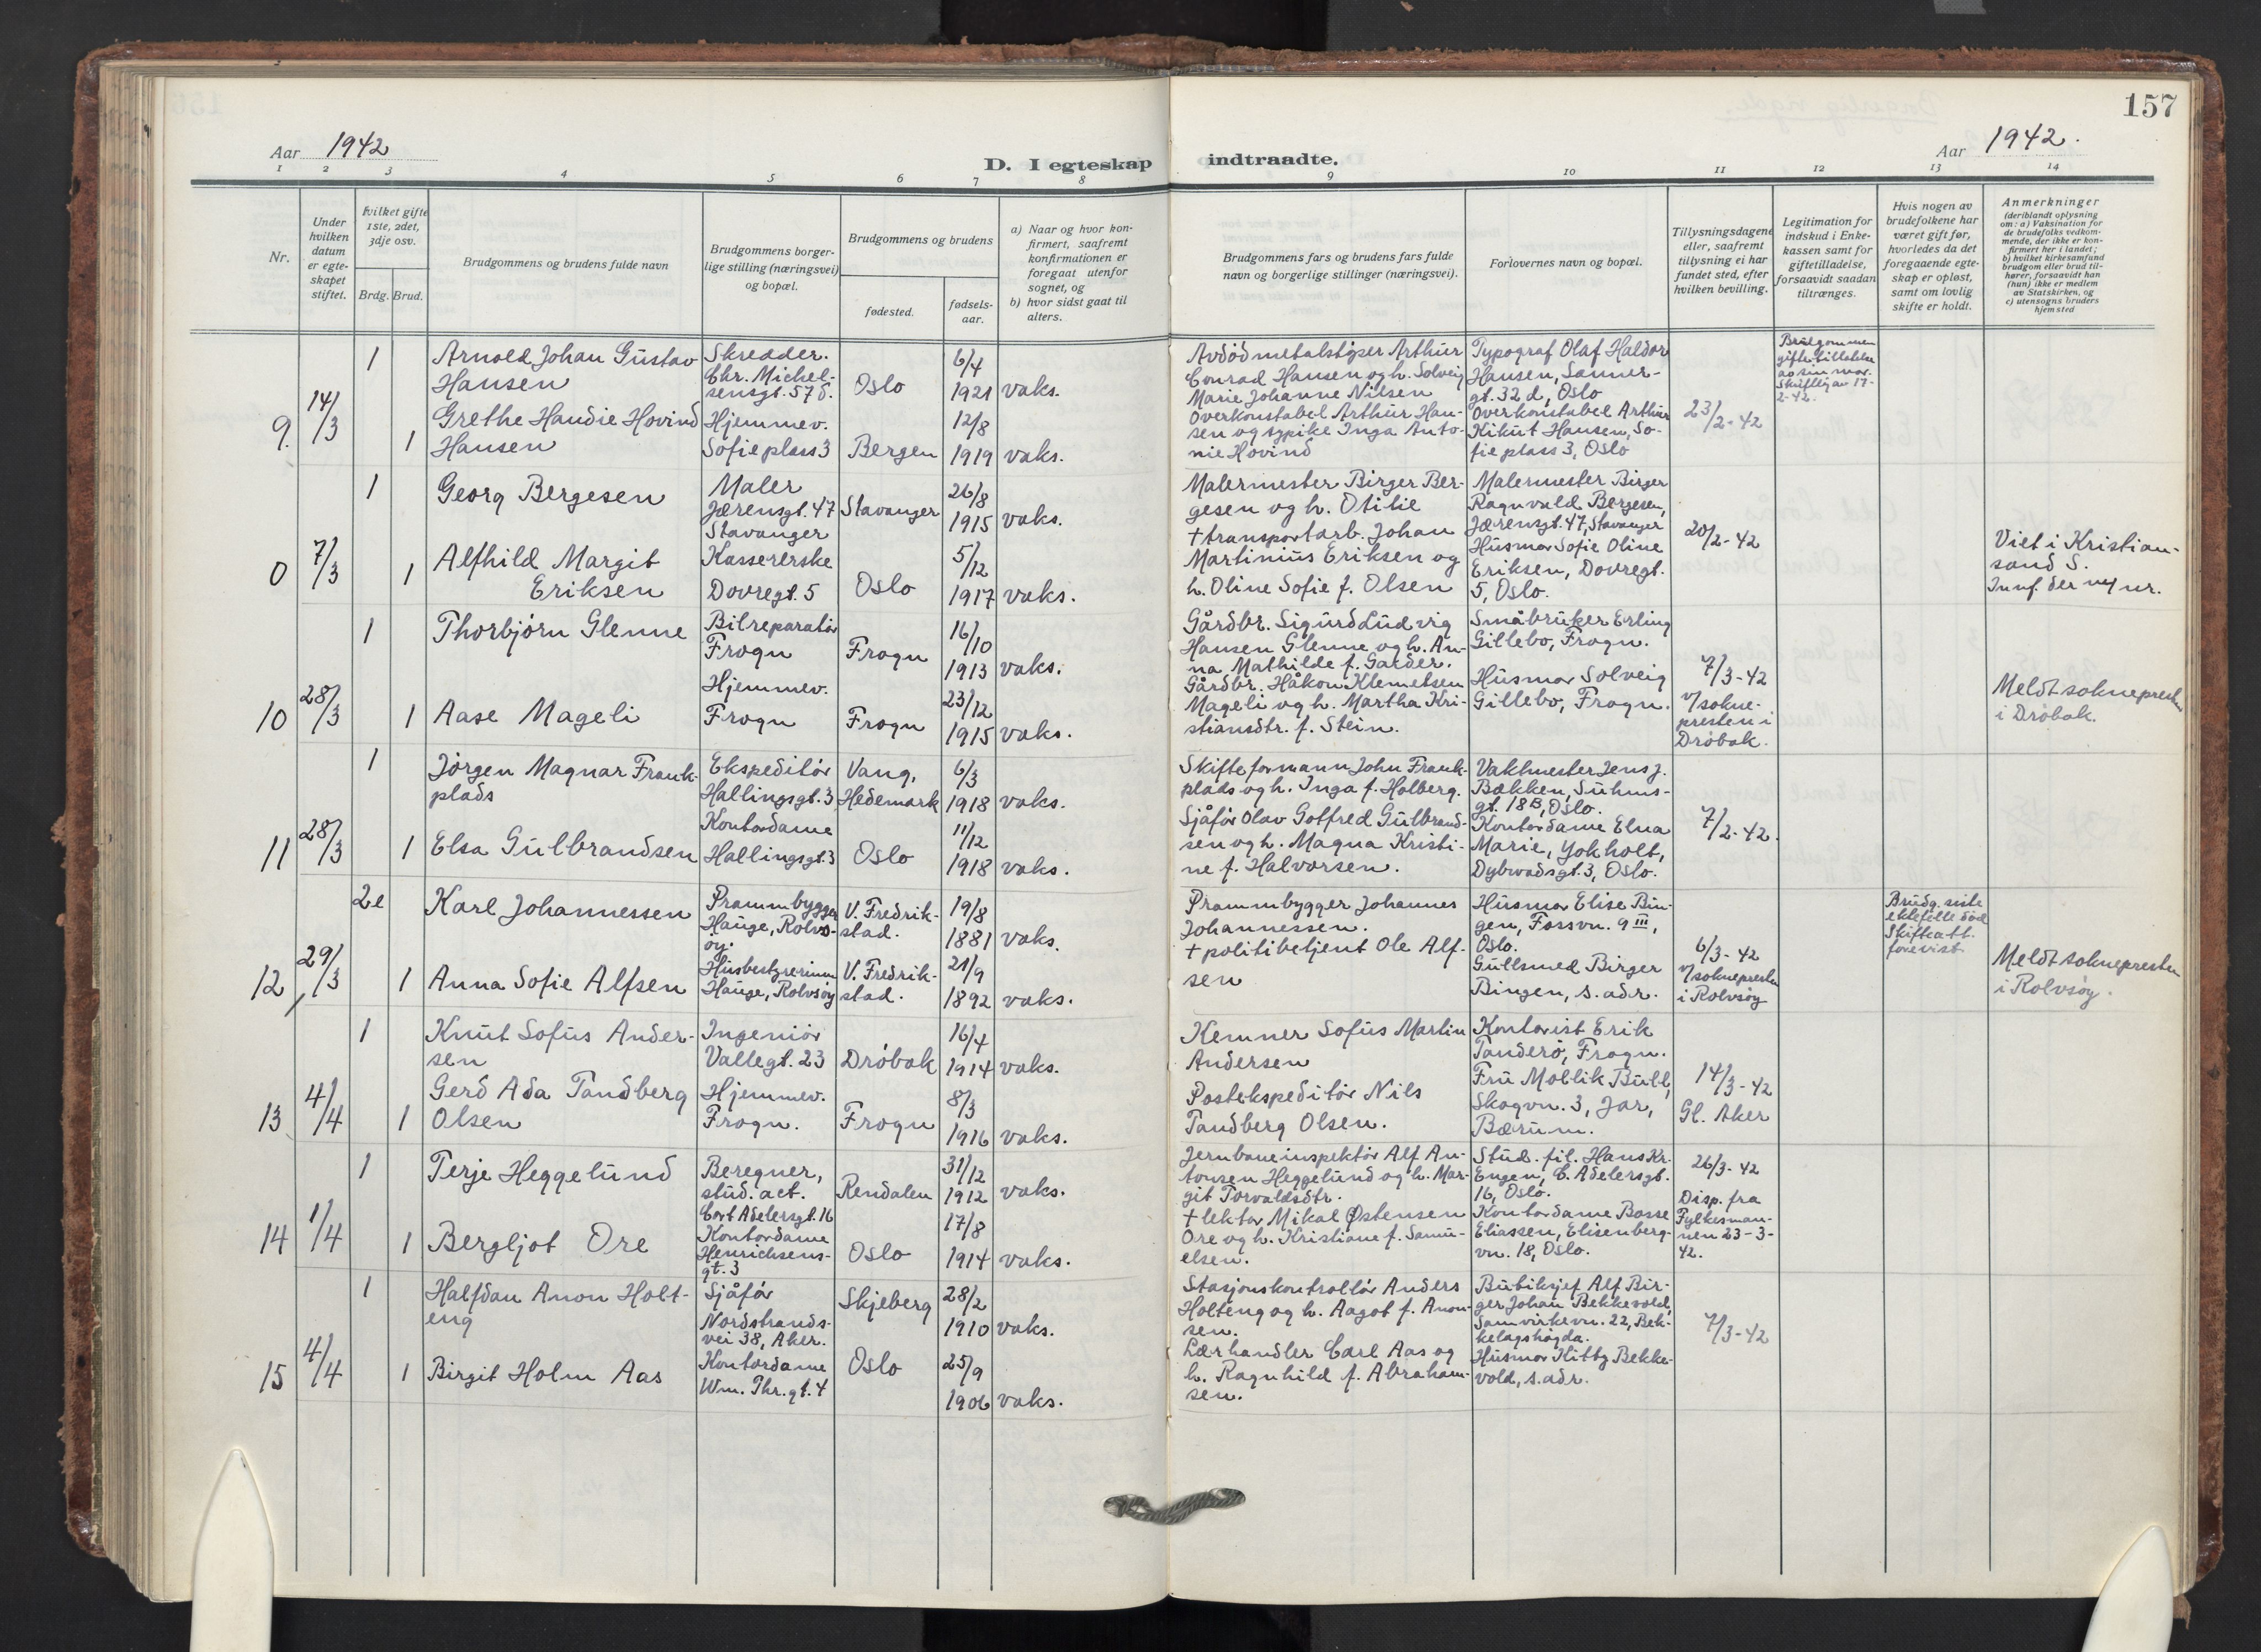 157
Aar 1942
D. I egteskap indtraadte.
Aar 1942.
1 2 3 4 5 6 7 8 9 10 11 12 13 14
Nr.
Under
hvilken
datum
er egte-
skapet
stiftet.
hvilket gifte
1ste, 2det,
3dje osv.
Brdg. Brud.
Brudgommens og brudens fulde navn
Brudgommens borger-
lige stilling (næringsvei)
og bopæl.
Brudgommens og brudens
fødested.
fødsels-
aar.
a) Naar og hvor kon-
firmert, saafremt
konfirmationen er
foregaat utenfor
sognet, og
b) hvor sidst gaat til
alters.
Brudgommens fars og brudens fars fulde
navn og borgerlige stillinger (næringsvei).
Forlovernes navn og bopæl.
Tillysningsdagene
eller, saafremt
tillysning ei har
fundet sted, efter
hvilken bevilling.
Legitimation for
indskud i Enke-
kassen samt for
giftetilladelse,
forsaavidt saadan
tiltrænges.
Hvis nogen av
brudefolkene har
været gift før,
hvorledes da det
foregaaende egte-
skap er opløst,
samt om lovlig
skifte er holdt.
Anmerkninger
(deriblandt oplysning
om: a) Vaksination for
de brudefolks vedkom-
mende, der ikke er kon-
firmert her i landet;
b) hvilket kirkesamfund
brudgom eller brud til-
hører, forsaavidt han
(hun) ikke er medlem
av Statskirken, og
c) utensogns bruders
hjemsted
9.
14/3
1
Arnold Johan Gustav
Hansen
Skredder.
Chr. Michel-
sensgt. 57
Oslo
6/4
1921
vaks.
1
Grethe Haudie Hovind
Hansen
Hjemmev.
Sofieplass 3
Bergen
12/8
1919
vaks.
Avdød metalstøper Arthur
Conrad Hansen og h. Solveig
Marie Johanne Nilsen
Overkonstabel Arthur Han-
sen og pike Inga Anto-
nie Hovind
Typograf Olaf Haldor
Hansen, Sanner-
gt. 32 d, Oslo
Overkonstabel Arthur
Kikut Hansen, So-
fieplass 3, Oslo
23/2-42
Brudgommen
giftetilladelse
av sin mor.
Skriftlig av 17-
2-42.
0
7/3
1
Georg Bergesen
Maler
Jærensgt. 47
Stavanger
Stavanger
26/8
1915
vaks.
1
Alfhild Margit
Eriksen
Kassererske
Dovregt. 5
Oslo
5/12
1917
vaks.
Malermester Birger Ber-
gesen og h. Otilie
† transportarb. Johan
Martinius Eriksen og
h. Oline Sofie f. Olsen
Malermester Birger
Ragnvald Bergesen,
Jærensgt. 47, Stavanger
Husmor Sofie Oline
Eriksen, Dovregt.
5, Oslo.
20/2-42
Viet i Kristian-
sand S.
Innf. der m/ nr.
10
28/3
1
Thorbjørn Glenne
Bilreparatør
Frogn
Frogn
16/10
1913
vaks.
1
Aase Mageli
Hjemmev.
Frogn
Frogn
23/12
1915
vaks.
Gårdbr. Sigurd Ludvig
Hansen Glenne og h. An-
na Mathilde f. Garder.
Gårdbr. Håkon Klemetsen
Mageli og h. Martha Kri-
stiansdtr. f. Stein.
Småbruker Erling
Gillebo, Frogn.
Husmor Solveig
Gillebo, Frogn.
7/3-42
v/sokne-
presten i
Drøbak.
Meldt soknepresten
i Drøbak.
11
28/3
1
Jørgen Magnar Frank-
plads
Ekspeditør
Hallingsgt. 3
Vang,
Hedemark
6/3
1918
vaks.
1
Elsa Gulbrandsen
Kontordame
Hallingsgt. 3
Oslo
11/12
1918
vaks.
Skifteformann John Frank-
plads og h. Inga f. Holberg.
Sjåfør Olav Gotfred Gulbrand-
sen og h. Magna Kristi-
ne f. Halvorsen.
Vaktmester Jens J.
Bækken, Suhms-
gt. 18B, Oslo.
Kontordame Elna
Marie, Yokholt,
Dybwadsgt. 3, Oslo.
7/2-42.
12
29/3
2e
Karl Johannessen
Prammbygger
Hauge, Rolvs-
øy.
V. Fredrik-
stad.
19/8
1881
vaks.
1
Anna Sofie Alfsen
Husbestyrerinne
Hauge, Rolvsøy
V. Fredrik-
stad.
21/9
1892
vaks.
Prammbygger Johannes
Johannessen.
† politibetjent Ole Alf-
sen
Husmor Elise Bin-
gen, Fossvn. 9 III,
Oslo.
Gullsmed Birger
Bingen, s. adr.
6/3-42
v/soknepresten
i Rolvsøy
Brudg. siste
ektefelle død
Skifteatt.
forevist
Meldt soknepresten
i Rolvsøy.
13
4/4
1
Knut Sofus Ander-
sen
Ingeniør
Vallegt. 23
Drøbak
16/4
1914
vaks.
1
Gerd Ada Tandberg
Olsen
Hjemmev.
Frogn.
Frogn
8/3
1916
vaks.
Kemner Sofus Martin
Andersen
Postekspeditør Nils
Tandberg Olsen.
Kontorist Erik
Tanderø, Frogn.
Fru Mollik Bull,
Skogvn. 3, Jar,
Bærum.
14/3-42
Gl. Aker
14
1/4
1
Terje Heggelund
Beregner,
stud. act.
Cort Adelersgt. 16
Rendalen
31/12
1912
vaks.
1
Bergljot Ore
Kontordame
Henrichsens-
gt. 3
Oslo
17/8
1914
vaks.
Jernbaneinspektør Alf An-
tonsen Heggelund og h. Mar-
git Torvaldsdtr.
† lektor Mikal Østensen
Ore og h. Kristiane f. Samu-
elsen.
Stud. fil. Hans Kr.
Engen, C. Adelersgt.
16, Oslo.
Kontordame Bosse
Eliassen, Elisenberg-
vn. 18, Oslo.
26/3-42
Disp. fra
Fylkesman-
nen 23-3-
42.
15
4/4
1
Halfdan Anon Holt-
eng
Sjåfør
Nordstrands-
vei 38, Aker.
Skjeberg
28/2
1910
vaks.
1
Birgit Holm Aas
Kontordame
Wm. Thr. gt. 4
Oslo
25/9
1906
vaks.
Stasjonskontrollør Anders
Holteng og h. Aagot f. Anon-
sen.
Lærhandler Carl Aas og
h. Ragnhild f. Abraham-
sen.
Butiksjef Alf Bir-
ger Johan Bekkevold,
Samvirkevn. 22, Bek-
kelagshøgda.
Husmor Kitty Bekke-
vold, s. adr.
7/3-42